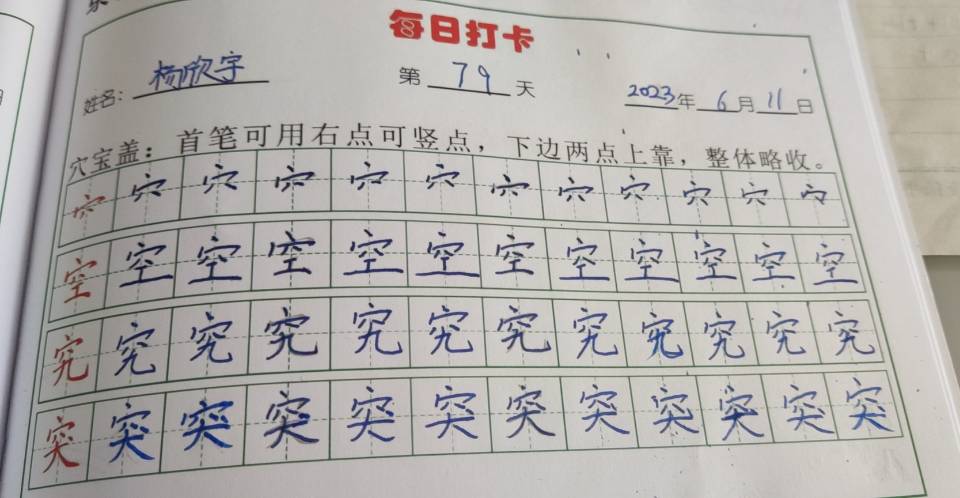 每日打卡
姓名：杨欣宇 第79天 2023年6月11日
穴宝盖：首笔可用右点可竖点，下边两点上靠，整体略收。
穴穴穴穴穴穴穴穴穴穴穴穴
空空空空空空空空空空空空
究究究究究究究究究究究究
突突突突突突突突突突突突